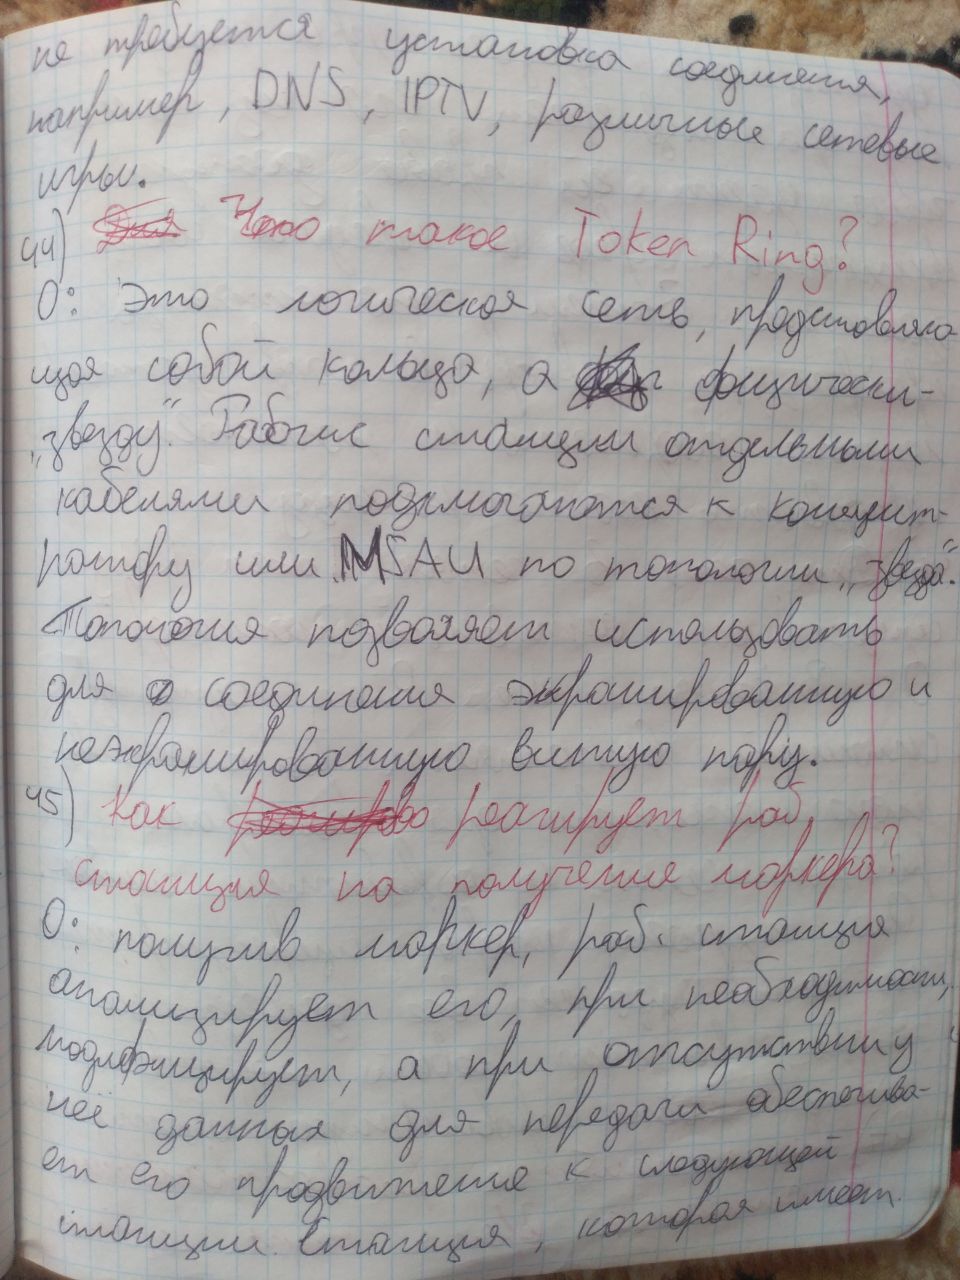 не требуется установка соединения,
например, DNS, IPTV, различные сетевые
игры.
44) Что такое Token Ring?
О: Это логическая сеть, представляю-
щая собой кольцо, а физически-
„звезду". Рабочие станции отдельными
кабелями подключаются к концент-
ратору или MSAU по топологии „звезда".
Топология позволяет использовать
для соединения экранированную и
неэкранированную витую пару.
45) Как реагирует раб.
станция на получения маркера?
О: получив маркер, раб. станция
анализирует его, при необходимости,
модифицирует, а при отсутствии у
неё данных для передачи обеспечива-
ет его продвижение к следующей
станции. Станция, которая имеет